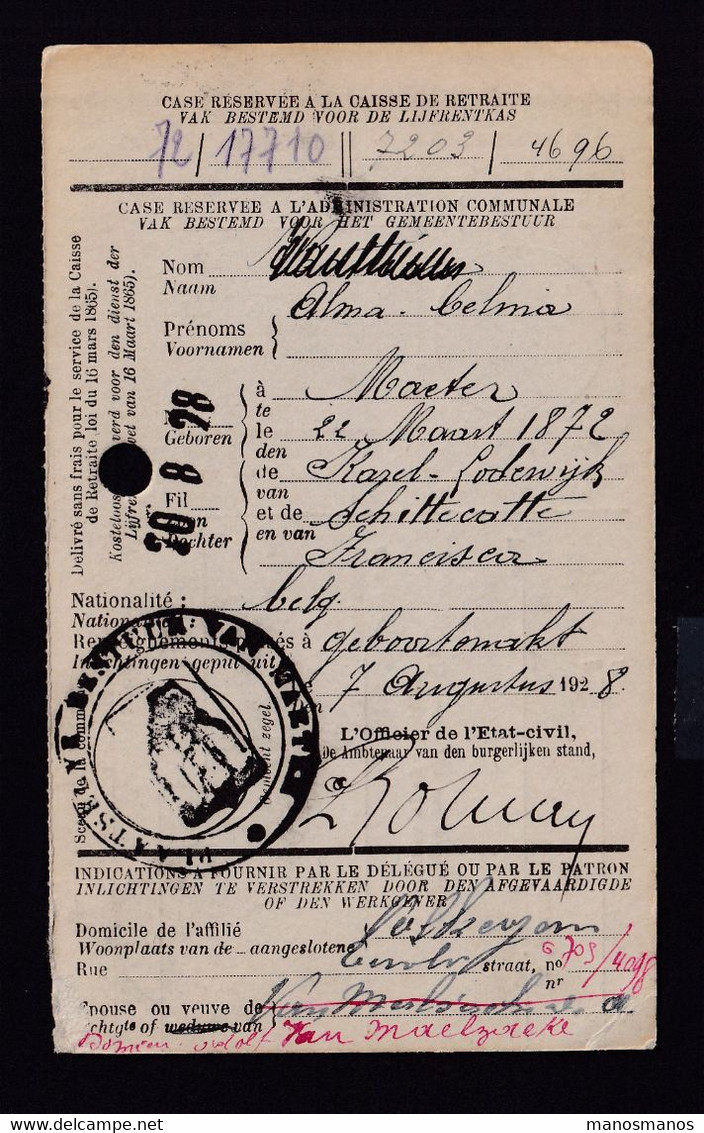 CASE RESERVÉE A LA CAISSE DE RETRAITE
VAK BESTEMD VOOR DE LIJFRENTKAS
72 | 17710 || 7203 | 4696
CASE RESERVEE A L'ADMINISTRATION COMMUNALE
VAK BESTEMD VOOR HET GEMEENTEBESTUUR
Délivré sans frais pour le service de la Caisse
de Retraite loi du 16 mars 1865).
Kosteloos verd voor den dienst der
Lijfren wet van 16 Maart 1865).
Nom
Naam
Alma Celma
Prénoms
Voornamen
20 8 28
à Maeter
te
Geboren le 22 Maart 1872
den
de Karel-Lodewijk
van
Fil et de Schittecatte
en van
Dochter Francisca
Nationalité : belg.
Renseignements puisés à geboortemakt
Inlichtingen geput uit
le 7 Augustus 1928.
L'Officier de l'Etat-civil,
De Ambtenaar van den burgerlijken stand,
Sceau de la comm
Gemeent zegel
PLAATS
BESTUUR VAN
INDICATIONS A FOURNIR PAR LE DÉLÉGUÉ OU PAR LE PATRON
INLICHTINGEN TE VERSTREKKEN DOOR DEN AFGEVAARDIGDE
OF DEN WERKGEVER
Domicile de l'affilié
Woonplaats van de aangeslotene
Rue straat, no G 703/4098
nr
Epouse ou veuve de
echtgte of weduwe van
Van Maelzaeke
manosmanos